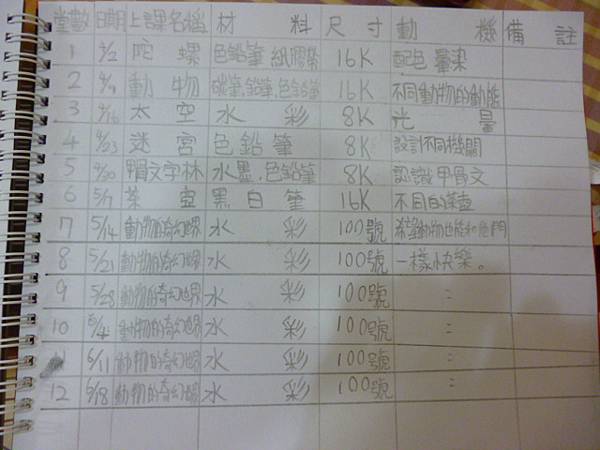 堂數 日期 上課名稱 材料 尺寸 動機 備註
1 4/2 陀螺 色鉛筆 紙膠帶 16K 配色 暈染
2 4/9 動物 碳筆.鉛筆.色鉛筆 16K 不同動物的動態
3 4/16 太空 水彩 8K 光暈
4 4/23 迷宮 色鉛筆 8K 設計不同機關
5 4/30 甲骨文字林 水墨.色鉛筆 8K 認識甲骨文
6 5/7 茶壺 黑白筆 16K 不同的茶壺
7 5/14 動物的奇幻世界 水彩 100號 希望動物也能和他們
8 5/21 動物的奇幻世界 水彩 100號 一樣快樂。
9 5/28 動物的奇幻世界 水彩 100號 :
10 6/4 動物的奇幻世界 水彩 100號 :
6/11 動物的奇幻世界 水彩 100號 :
12 6/18 動物的奇幻世界 水彩 100號 :